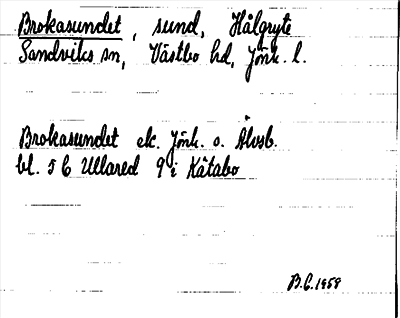 Brokasundet, sund, Hålgryte
Sandviks sn, Västbo hd, Jönk. l.
Brokasundet ek. Jönk. o. Älvsb.
bl. 5 C Ullared 9 i Kåtabo
B.C. 1959